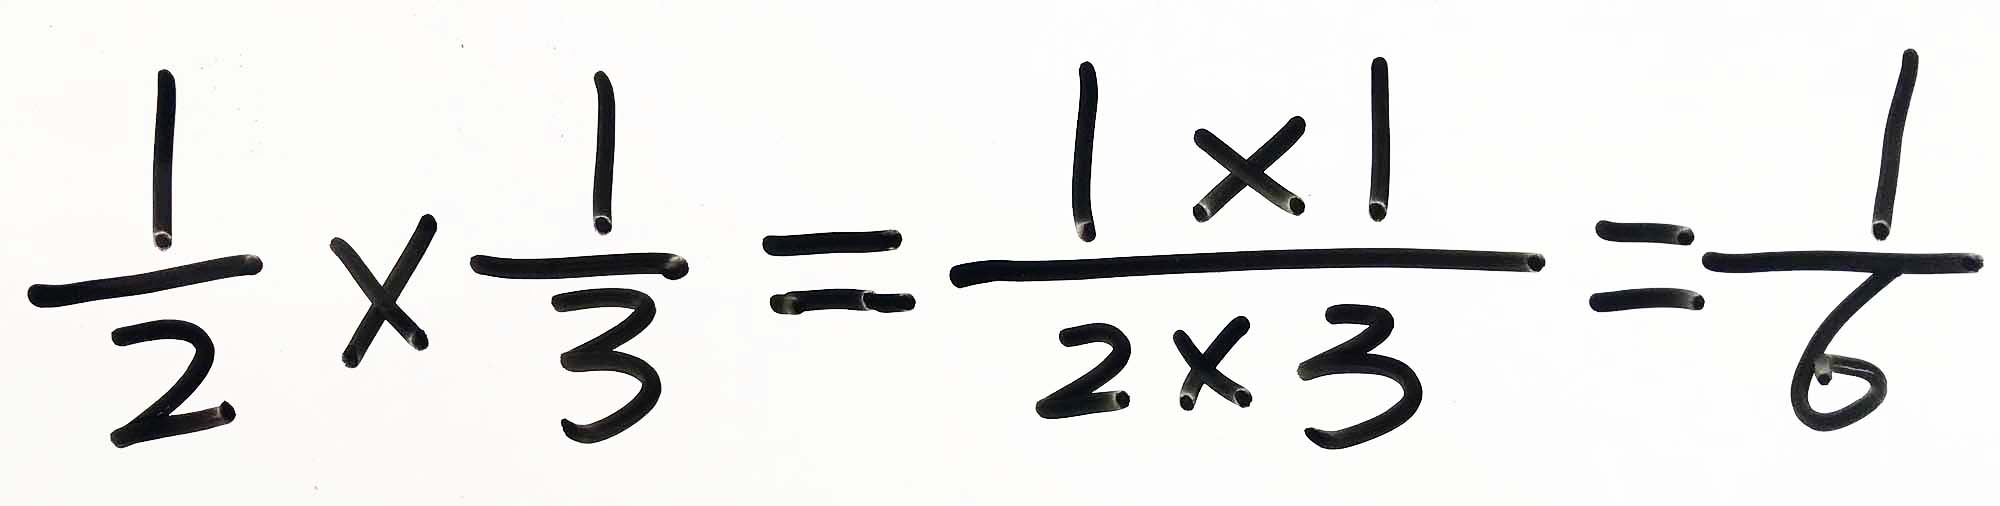 1/2 × 1/3 = (1 × 1)/(2 × 3) = 1/6